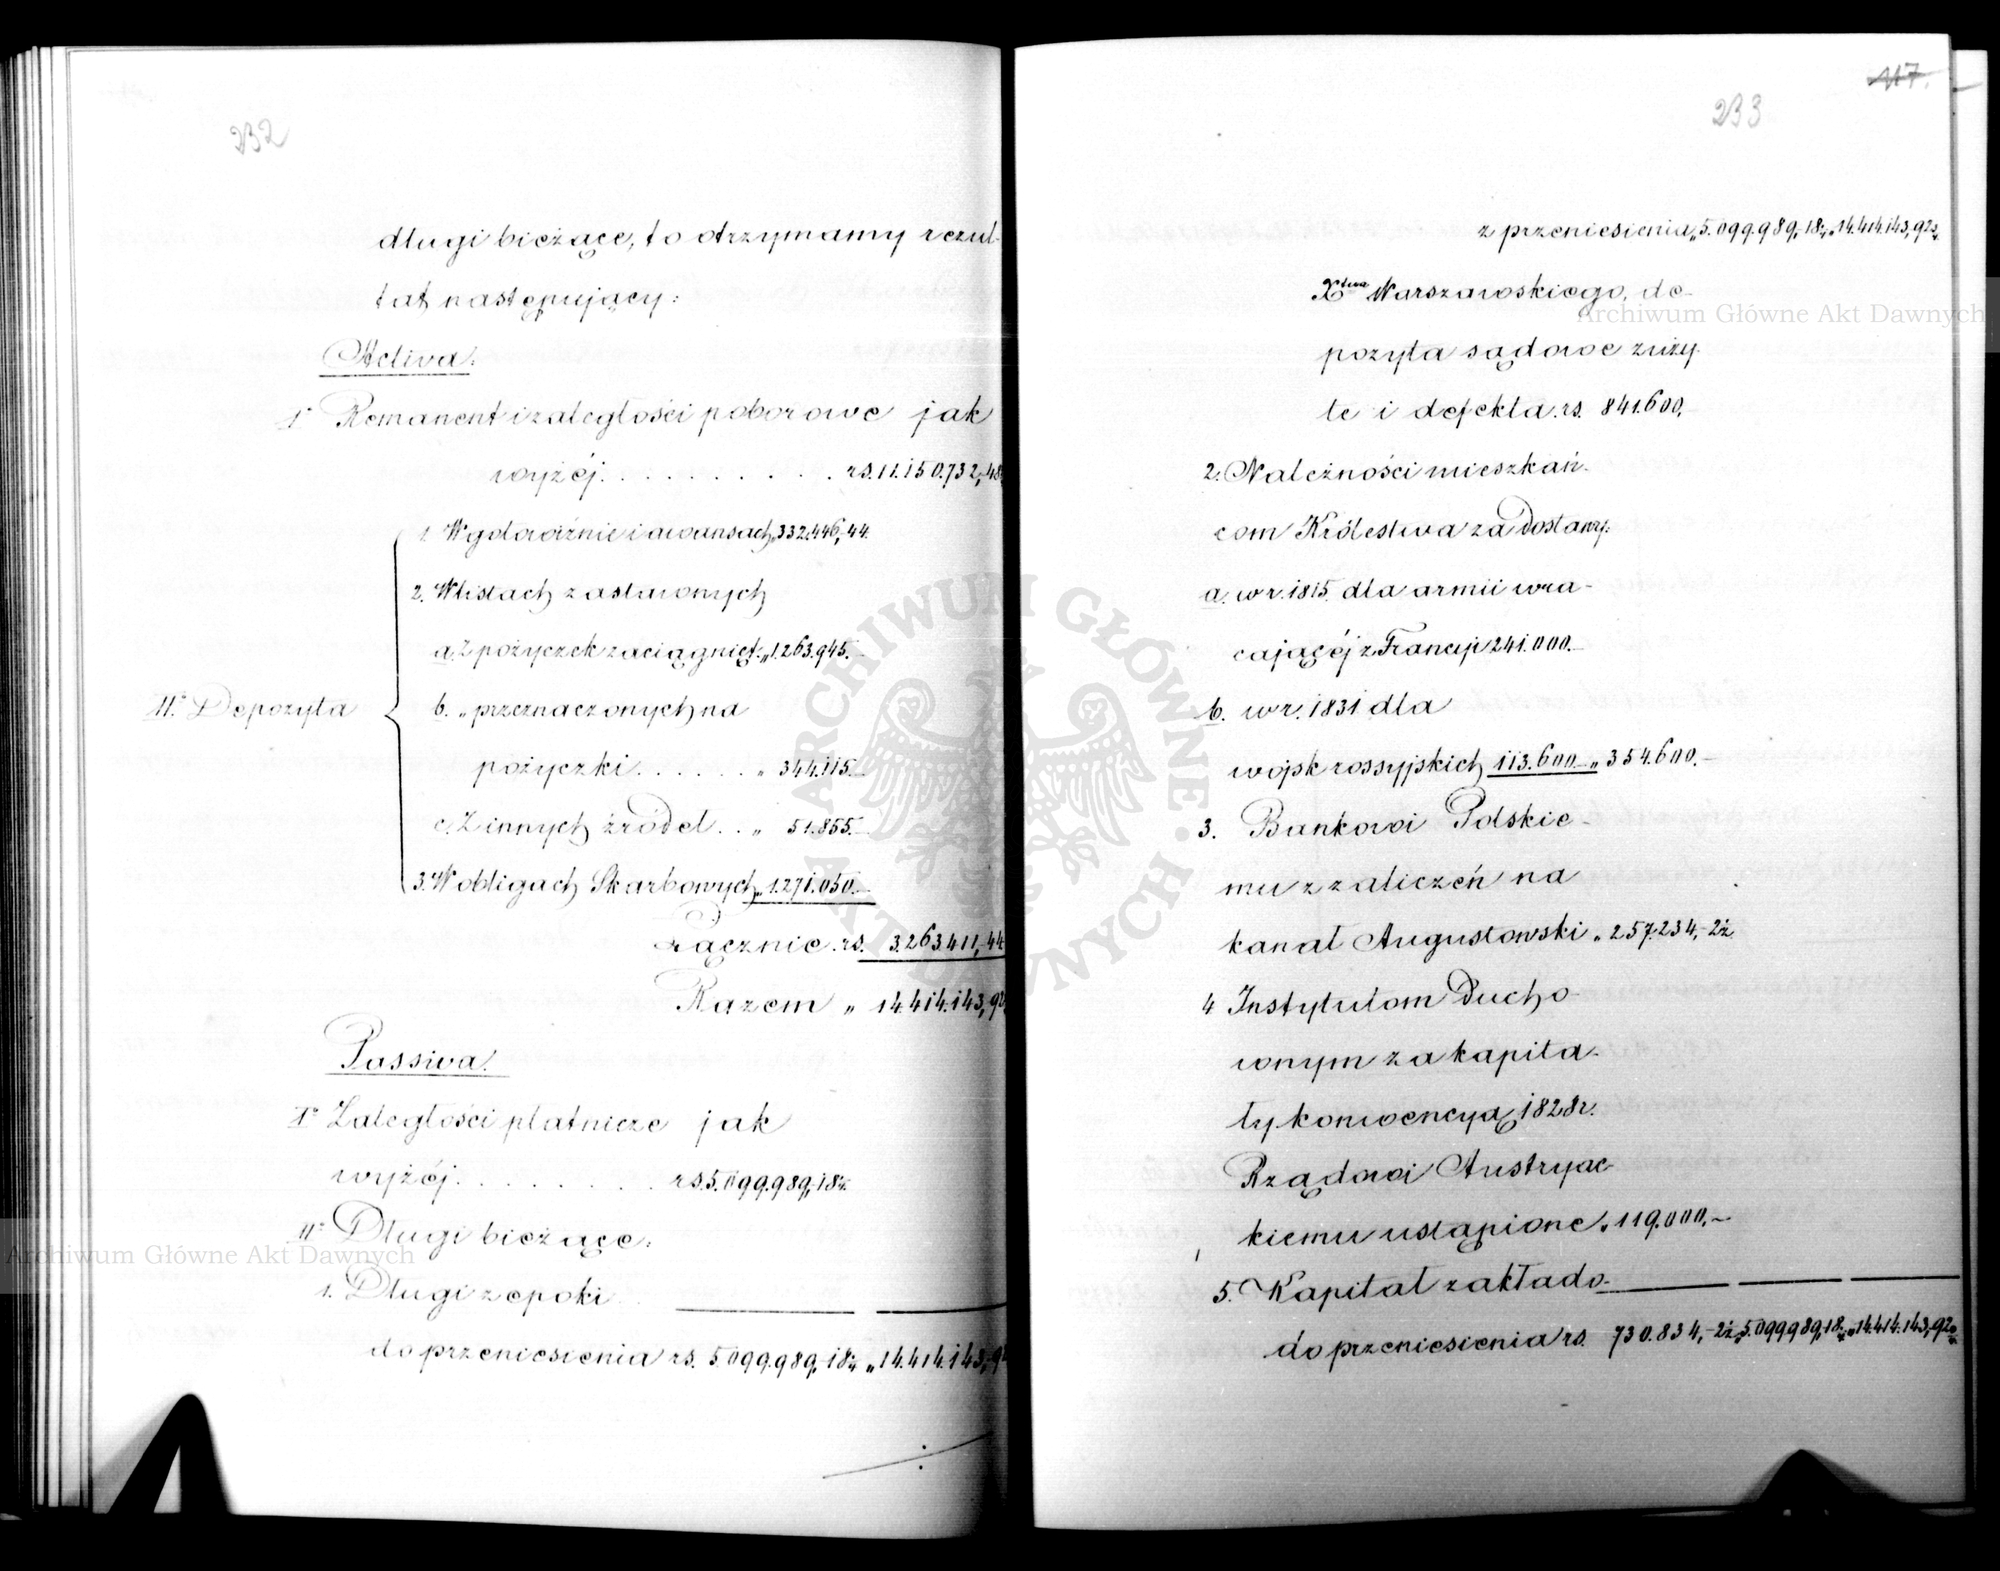 232
długi bieżące, to otrzymamy rezul-
tat następujący:
Activa:
1° Remanent i zaległości poborowe jak
wyżéj. . . . . . . . . . rs. 11.150.732,48
1. W gotowiźnie i awansach „ 332.446,44.
2. W listach zastawnych
a. Z pożyczek zaciągnięt. „ 1.263.945.—
11.° Depozyta
b. „ przeznaczonych na
pożyczki . . . . . . „ 344.115.—
c. Z innych źródeł. . „ 51.855.—
3. W obligach Skarbowych „ 1.271.050.—
Łącznie. rs. 3.263.411,44
Razem „ 14.414.143,92
Passiva:
1° Zaległości płatnicze jak
wyżéj. . . . . . . . rs. 5.099.989,18½
11° Długi bieżące:
1. Długi z epoki
do przeniesienia rs. 5.099.989,18½ „ 14.414.143,9
117.
233
z przeniesienia „ 5.099.989,18½ „ 14.414.143,92
Xtwa Warszawskiego, de-
pozyta sądowe zuży-
te i defekta. rs. 841.600,—
2. Należności mieszkań-
com Królestwa za dostawy:
a. w r. 1815. dla armii wra-
cającéj z Francyi 241.000.—
b. w r. 1831 dla
wojsk rossyjskich 113.600.— „ 354.600.—
3. Bankowi Polskie-
mu z zaliczeń na
kanał Augustowski „ 257.234,2½
4 Instytutom Ducho-
wnym za kapita-
ły konwencyą 1828 r.
Rządowi Austryac-
kiemu ustąpione „ 119.000,—
5. Kapitał zakłado-
do przeniesienia rs. 730.834,2½ „ 5.099.989,18½ „ 14.414.143,92
Archiwum Główne Akt Dawnych
Archiwum Główne Akt Dawnych
ARCHIWUM GŁÓWNE AKT DAWNYCH